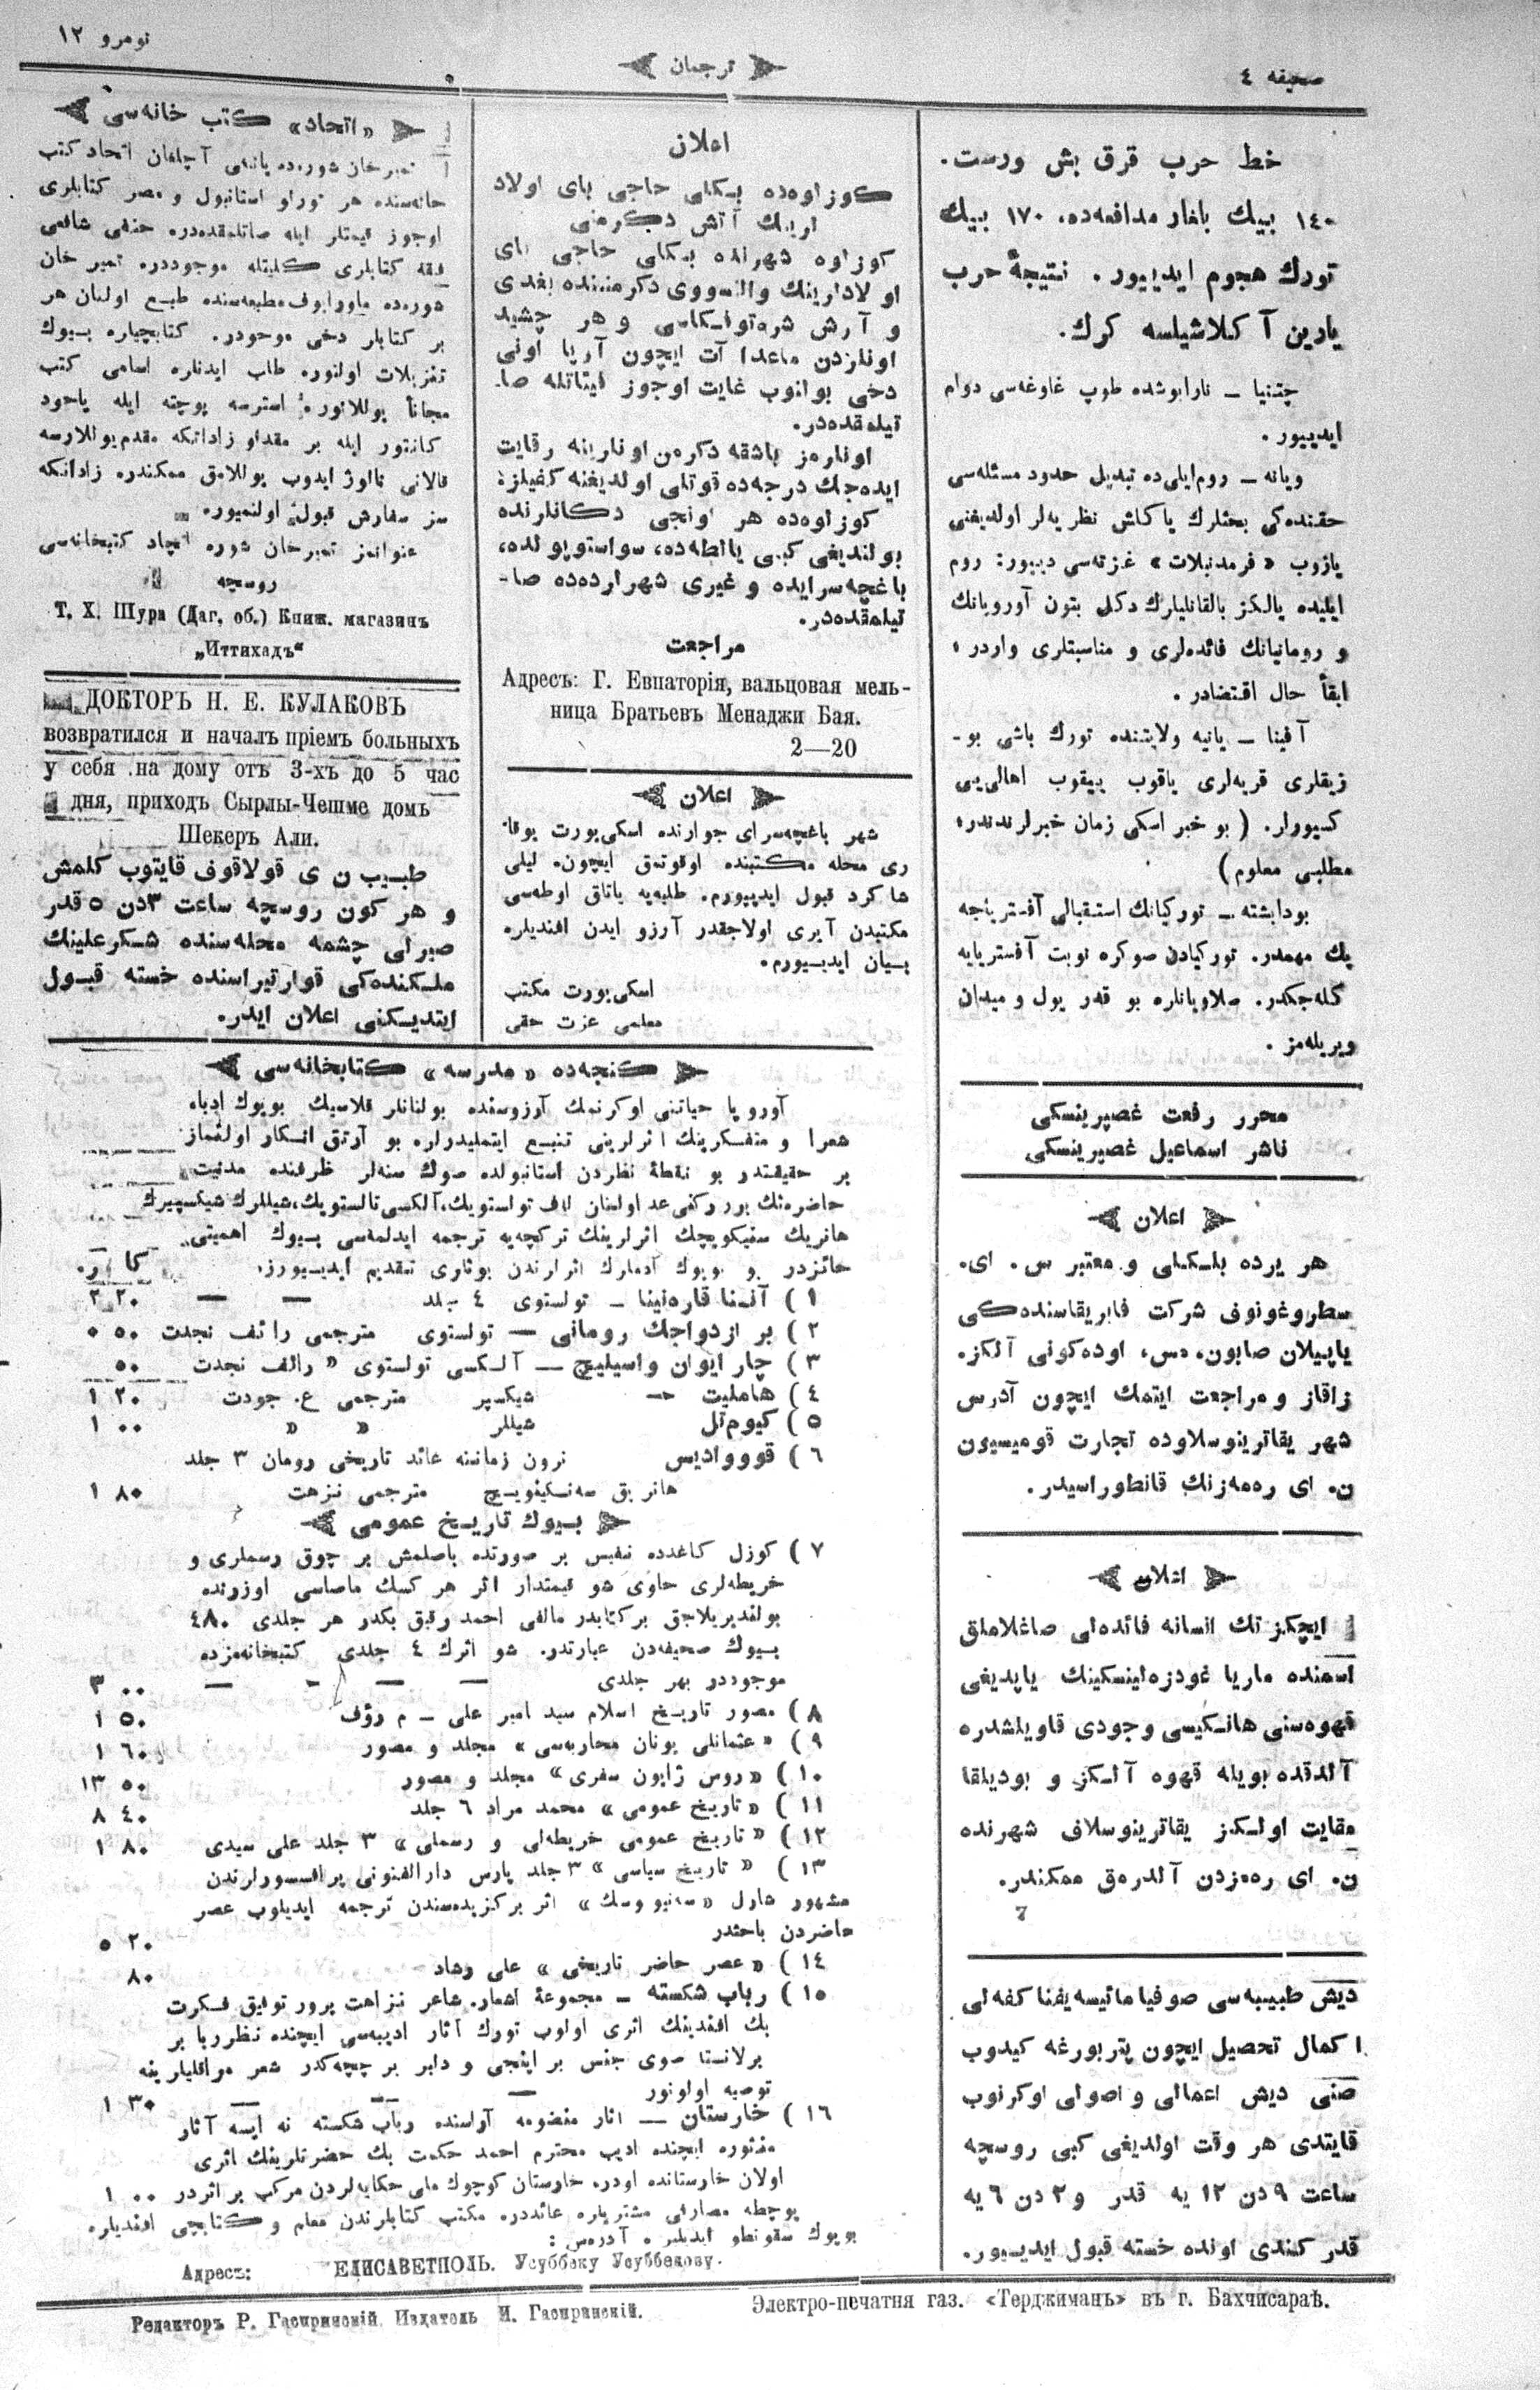 صحیفه ٤
ترجمان
نومرو ١٢
خط حرب قرق بش ورست.
١٤٠ بیك بلغار مدافعه‌ده، ١٧٠ بیك
تورك هجوم ایدییور. نتیجۀ حرب
یارین آكلاشیلسه كرك.
چتنیا ــ نارابوشده طوپ غاوغه‌سی دوام
ایدییور.
ویانه ــ روم‌ایلی‌ده تبدیل حدود مسئله‌سی
حقنده‌كی بحثلرك یاكلش نظریه‌لر اولدیغنی
یازوب «فرمدنبلات» غزته‌سی دییور: روم
ایلیده یالكز بالقانلیلرك دكل بتون آوروپانك
و رومانیانك فائده‌لری و مناسبتلری واردر،
ابقأ حال اقتضادر.
آفینا ــ یانیه ولایتنده تورك باشی بو-
زیقلری قریه‌لری یاقوب ییقوب اهالی‌یی
كسیورلر. (بو خبر اسكی زمان خبرلرندندر،
مطلبی معلوم)
بوداپشته ــ توركیانك استقبالی آفستریاجه
پك مهمدر. توركیادن صوكره نوبت آفستریایه
كله‌جكدر. صلاویانلره بو قدر یول و میدان
ویریله‌مز.
محرر رفعت غصپرینسكی
ناشر اسماعیل غصپرینسكی
اعلان
هر یرده بللكلی و معتبر س. ای.
سطروغونوف شركت فابریقاسنده‌كی
یاپیلان صابون، مس، اوده‌كونی آلكز.
زاقاز و مراجعت ایتمك ایچون آدرس
شهر یقاترینوسلاوده تجارت قومیسیون
ن. ای ره‌مه‌زنك قانطوراسیدر.
اعلان
ایچكز تك انسانه فائده‌لی صاغلاملق
اسمنده ماریا غودزه‌لینسكینك یاپدیغی
قهوه‌سنی هانكیسی وجودی قاویلشدره
آلدقده بویله قهوه آلكز و بودیلقا
مقایت اولكز یقاترینوسلاف شهرنده
ن. ای ره‌مزدن آلدرمق ممكندر.
7
دیش طبیبه‌سی صوفیا مائیسه‌یفنا كفه‌لی
اكمال تحصیل ایچون پتربورغه كیدوب
صنی دیش اعمالی و اصولی اوكرنوب
قایتدی هر وقت اولدیغی كبی روسچه
ساعت ٩ دن ١٢ یه قدر و ٢ دن ٦ یه
قدر كندی اونده خسته قبول ایدییور.
اعلان
كوزلوه‌ده بكلی حاجی بای اولاد
لرینك آتش دكرمنی
كوزلوه شهرنده بكلی حاجی بای
اولادلرینك والسووی دكرمننده بغدی
و آرش شره‌توفكاسی و هر چشید
اونلردن ماعدا آت ایچون آرپا اونی
دخی بولنوب غایت اوجوز فیئاتله صا-
تیلمقده‌در.
اونلرمز باشقه دكرمن اونلرینه رقابت
ایده‌جك درجه‌ده قوتلی اولدیغنه كفیلز؛
كوزلوه‌ده هر اونجی دكانلرنده
بولندیغی كبی یالطه‌ده، سواستوپولده،
باغچه‌سرایده و غیری شهرلرده‌ده صا-
تیلمقده‌در.
مراجعت
Адресъ: Г. Евпаторія, вальцовая мель-
ница Братьевъ Менаджи Бая.
2—20
اعلان
شهر باغچه‌سرای جوارنده اسكی‌یورت یوقا-
ری محله مكتبنده اوقوتمق ایچون، لیلی
شاكرد قبول ایدییورم. طلبه‌یه یاتاق اوطه‌سی
مكتبدن آیری اولاجقدر آرزو ایدن افندیلره
بیان ایدییورم.
اسكی‌یورت مكتب
معلمی عزت حقی
«اتحاد» كتب خانه‌سی
تمیرخان شوره‌ده یاڭی آچلغان اتحاد كتب
خانه‌سنده هر تورلو استانبول و مصر كتابلری
اوجوز قیمتلر ایله صاتلمقده‌دره حنفی شافعی
فقه كتابلری كلیتله موجوددره تمیر خان
شوره‌ده ماورایوف مطبعه‌سنده طبع اولنان هر
بر كتابلر دخی موجودر. كتابچیلره بیوك
تنزیلات اولنوره طلب ایدنلره اسامی كتب
مجاناً یوللانوره استرسه پوچته ایله یاخود
كانتور ایله بر مقدار زاداتكه مقدم یوللارسه
قالانی نالوژ ایدوب یوللامق ممكندره زاداتكه
سز سفارش قبول اولنمیور.
عنوانمز تمیرخان شوره اتحاد كتبخانه‌سی
روسچه
Т. Х. Шура (Даг. об.) Книж. магазинъ
„Иттихадъ“
ДОКТОРЪ Н. Е. КУЛАКОВЪ
возвратился и началъ пріемъ больныхъ
у себя на дому отъ 3-хъ до 5 час
дня, приходъ Сырлы-Чешме домъ
Шекеръ Али.
طبیب ن ی قولاقوف قایتوب كلمش
و هر كون روسچه ساعت ٣دن ٥ قدر
صیرلی چشمه محله‌سنده شكرعلینك
ملكنده‌كی قوارتیراسنده خسته قبول
ایتدیكنی اعلان ایدر.
كنجه‌ده «مدرسه» كتابخانه‌سی
آوروپا حیاتنی اوكرنمك آرزوسنده بولنانلر قلاسیك بویوك ادبا،
شعرا و متفكرینك اثرلرینی تتبع ایتملیدرلره بو آرتق انكار اولنماز
بر حقیقتدر بو نقطۀ نظردن استانبولده صوك سنه‌لر ظرفنده مدنیت
حاضره‌نك بررركنی عد اولنان لاف تولستویك، آلكسی تالستویك، شیللرك شیكسپیرك
هانریك سفیكویچك اثرلرینك تركچه‌یه ترجمه ایدلمه‌سی بیوك اهمیتی
حائزدر و بویوك آدملرك اثرلرندن بونلری تقدیم ایدییورز. كا ر.
١ ) آننا قاره‌نینا ــ تولستوی ٤ جلد — — ٢ ٢٠
٢ ) بر ازدواجك رومانی — تولستوی مترجمی رائف نجدت ٥٠ ٠
٣ ) چار ایوان واسیلیچ — آلكسی تولستوی « رائف نجدت ٥٠
٤ ) هاملیت — شیكسپر مترجمی ع. جودت ١ ٢٠
٥ ) كیوم تل شیللر « « ١ ٠٠
٦ ) قووودایس نرون زماننه عائد تاریخی رومان ٣ جلد
هانریق سه‌نكیفویچ مترجمی نزهت ١ ٨٠
بیوك تاریخ عمومی
٧ ) كوزل كاغدده نفیس بر صورتده باصلمش بر چوق رسملری و
خریطه‌لری حاوی شو قیمتدار اثر هر كسك ماصاسی اوزرنده
بولندیریلاجق بركتابدر مالفی احمد رفیق بكدر هر جلدی ٤٨٠
بیوك صحیفه‌دن عبارتدر. شو اثرك ٤ جلدی كتبخانه‌مزده
موجوددر بهر جلدی — — - — ٣ ٠٠
٨ ) مصور تاریخ اسلام سید امیر علی ــ م رؤف ١ ٥٠
٩ ) «عثمانلی یونان محاربه‌سی» مجلد و مصور ١ ٦٠
١٠ ) «روس ژاپون سفری» مجلد و مصور ١٣ ٥٠
١١ ) «تاریخ عمومی» محمد مراد ٦ جلد ٨ ٤٠
١٢ ) «تاریخ عمومی خریطه‌لی و رسملی» ٣ جلد علی سیدی ١ ٨٠
١٣ ) «تاریخ سیاسی» ٣ جلد پارس دارالفنونی پرافسسورلرندن
مشهور شارل «سه‌نیوبوسك» اثر بركزیده‌سندن ترجمه ایدیلوب عصر
حاضردن باحثدر ٥ ٢٠
١٤ ) «عصر حاضر تاریخی» علی رشاد ٨٠
١٥ ) رباب شكسته ــ مجموعۀ اشعار. شاعر نزاهت پرور توفیق فكرت
بك افندینك اثری اولوب تورك آثار ادبیه‌سی ایچنده نظرربا بر
توصیه اولونور — — — ١ ٣٠
١٦ ) خارستان — اثار منضومه آراسنده رباب شكسته نه ایسه آثار
منثوره ایچنده ادیب محترم احمد حكمت بك حضرتلرینك اثری
اولان خارستانده اودره خارستان كوچوك ملی حكایه‌لردن مركب بر اثردر ١ ٠٠
پوچطه مصارفی مشتریلره عائددره مكتب كتابلرندن معلم و كتابچی افندیلره
بویوك سقونطو ایدیلیر. آدرس:
Адресъ: ЕЛИСАВЕТПОЛЬ. Усуббеку Усуббекову.
Редакторъ Р. Гаспринскій. Издатель И. Гаспринскій.
Электро-печатня газ. «Терджиманъ» въ г. Бахчисараѣ.